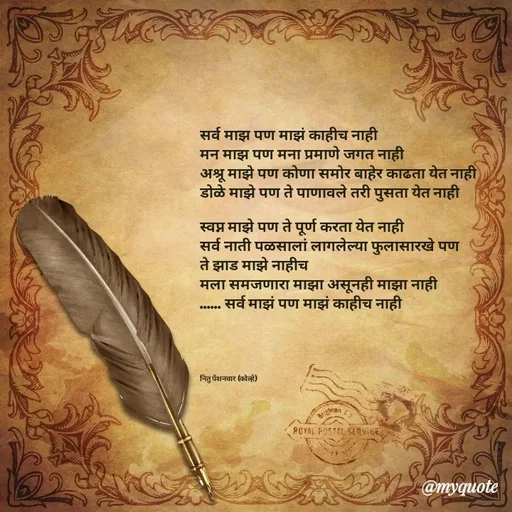 सर्व माझ पण माझं काहीच नाही
मन माझ पण मना प्रमाणे जगत नाही
अश्रू माझे पण कोणा समोर बाहेर काढता येत नाही
डोळे माझे पण ते पाणावले तरी पुसता येत नाही
स्वप्न माझे पण ते पूर्ण करता येत नाही
सर्व नाती पळसालां लागलेल्या फुलासारखे पण
ते झाड माझे नाहीच
मला समजणारा माझा असूनही माझा नाही
...... सर्व माझं पण माझं काहीच नाही
नितु पॅशनवार (कोल्हे)
ROYAL POSTAL SERVICE
@myquote